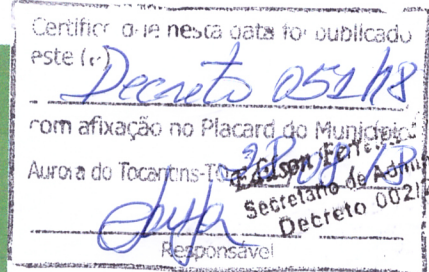 Certifico que nesta data foi publicado
este (a)
Decreto 051/18
com afixação no Placard do Município
Aurora do Tocantins-TO
Edison Ferre
Secretário de Admi
Decreto 002
Responsável